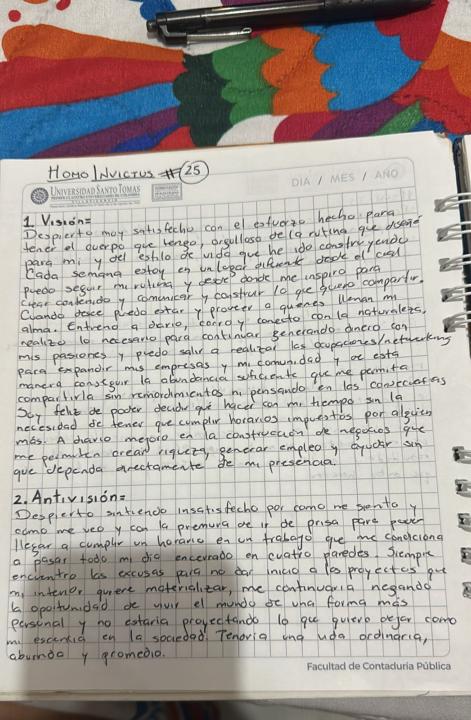 HOMO INVICTUS #25
DIA / MES / AÑO
UNIVERSIDAD SANTO TOMAS
1. Visión=
Despierto muy satisfecho con el esfuerzo hecho para
tener el cuerpo que tengo, orgulloso de la rutina que diseñé
para mi y del estilo de vida que he ido construyendo
Cada semana estoy en un lugar diferente desde el cual
puedo seguir mi rutina y desde donde me inspiro para
crear contenido y comunicar y construir lo que quiero compartir.
Cuando desee puedo estar y proveer a quienes llenan mi
alma. Entreno a diario, corro y conecto con la naturaleza,
realizo lo necesario para continuar generando dinero con
mis pasiones y puedo salir a realizar las ocupaciones/networking
para expandir mis empresas y mi comunidad y de esta
manera conseguir la abundancia suficiente que me permita
compartirla sin remordimientos ni pensando en las consecuencias
Soy feliz de poder decidir que hacer con mi tiempo sin la
necesidad de tener que cumplir horarios impuestos por alguien
más. A diario mejoro en la construcción de negocios que
me permiten crear riqueza, generar empleo y ayudar sin
que dependa directamente de mi presencia.
2. Antivisión=
Despierto sintiendo insatisfecho por como me siento y
como me veo y con la premura de ir de prisa para poder
llegar a cumplir un horario en un trabajo que me condiciona
a pasar todo mi día encerrado en cuatro paredes. Siempre
encuentro las excusas para no dar inicio a los proyectos que
mi interior quiere materializar, me continuaría negando
la oportunidad de vivir el mundo de una forma más
personal y no estaría proyectando lo que quiero dejar como
mi escencia en la sociedad. Tendría una vida ordinaria,
aburrida y promedio.
Facultad de Contaduría Pública